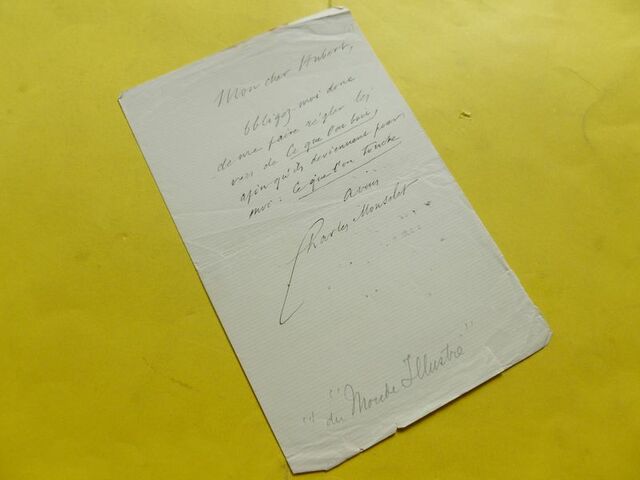 Mon cher Hubert,
Obligez moi donc
de me faire régler les
vers de Ce que l'on boit,
afin qu'ils deviennent pour
moi: Ce que l'on touche
à vous
Charles Monselet
" " du Monde Illustré "